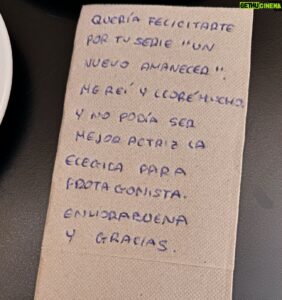 GETALLCINEMA
QUERÍA FELICITARTE
POR TU SERIE "UN
NUEVO AMANECER".
ME REÍ Y LLORÉ MUCHO.
Y NO PODÍA SER
MEJOR ACTRIZ LA
ELEGIDA PARA
PROTAGONISTA.
ENHORABUENA
Y GRACIAS.